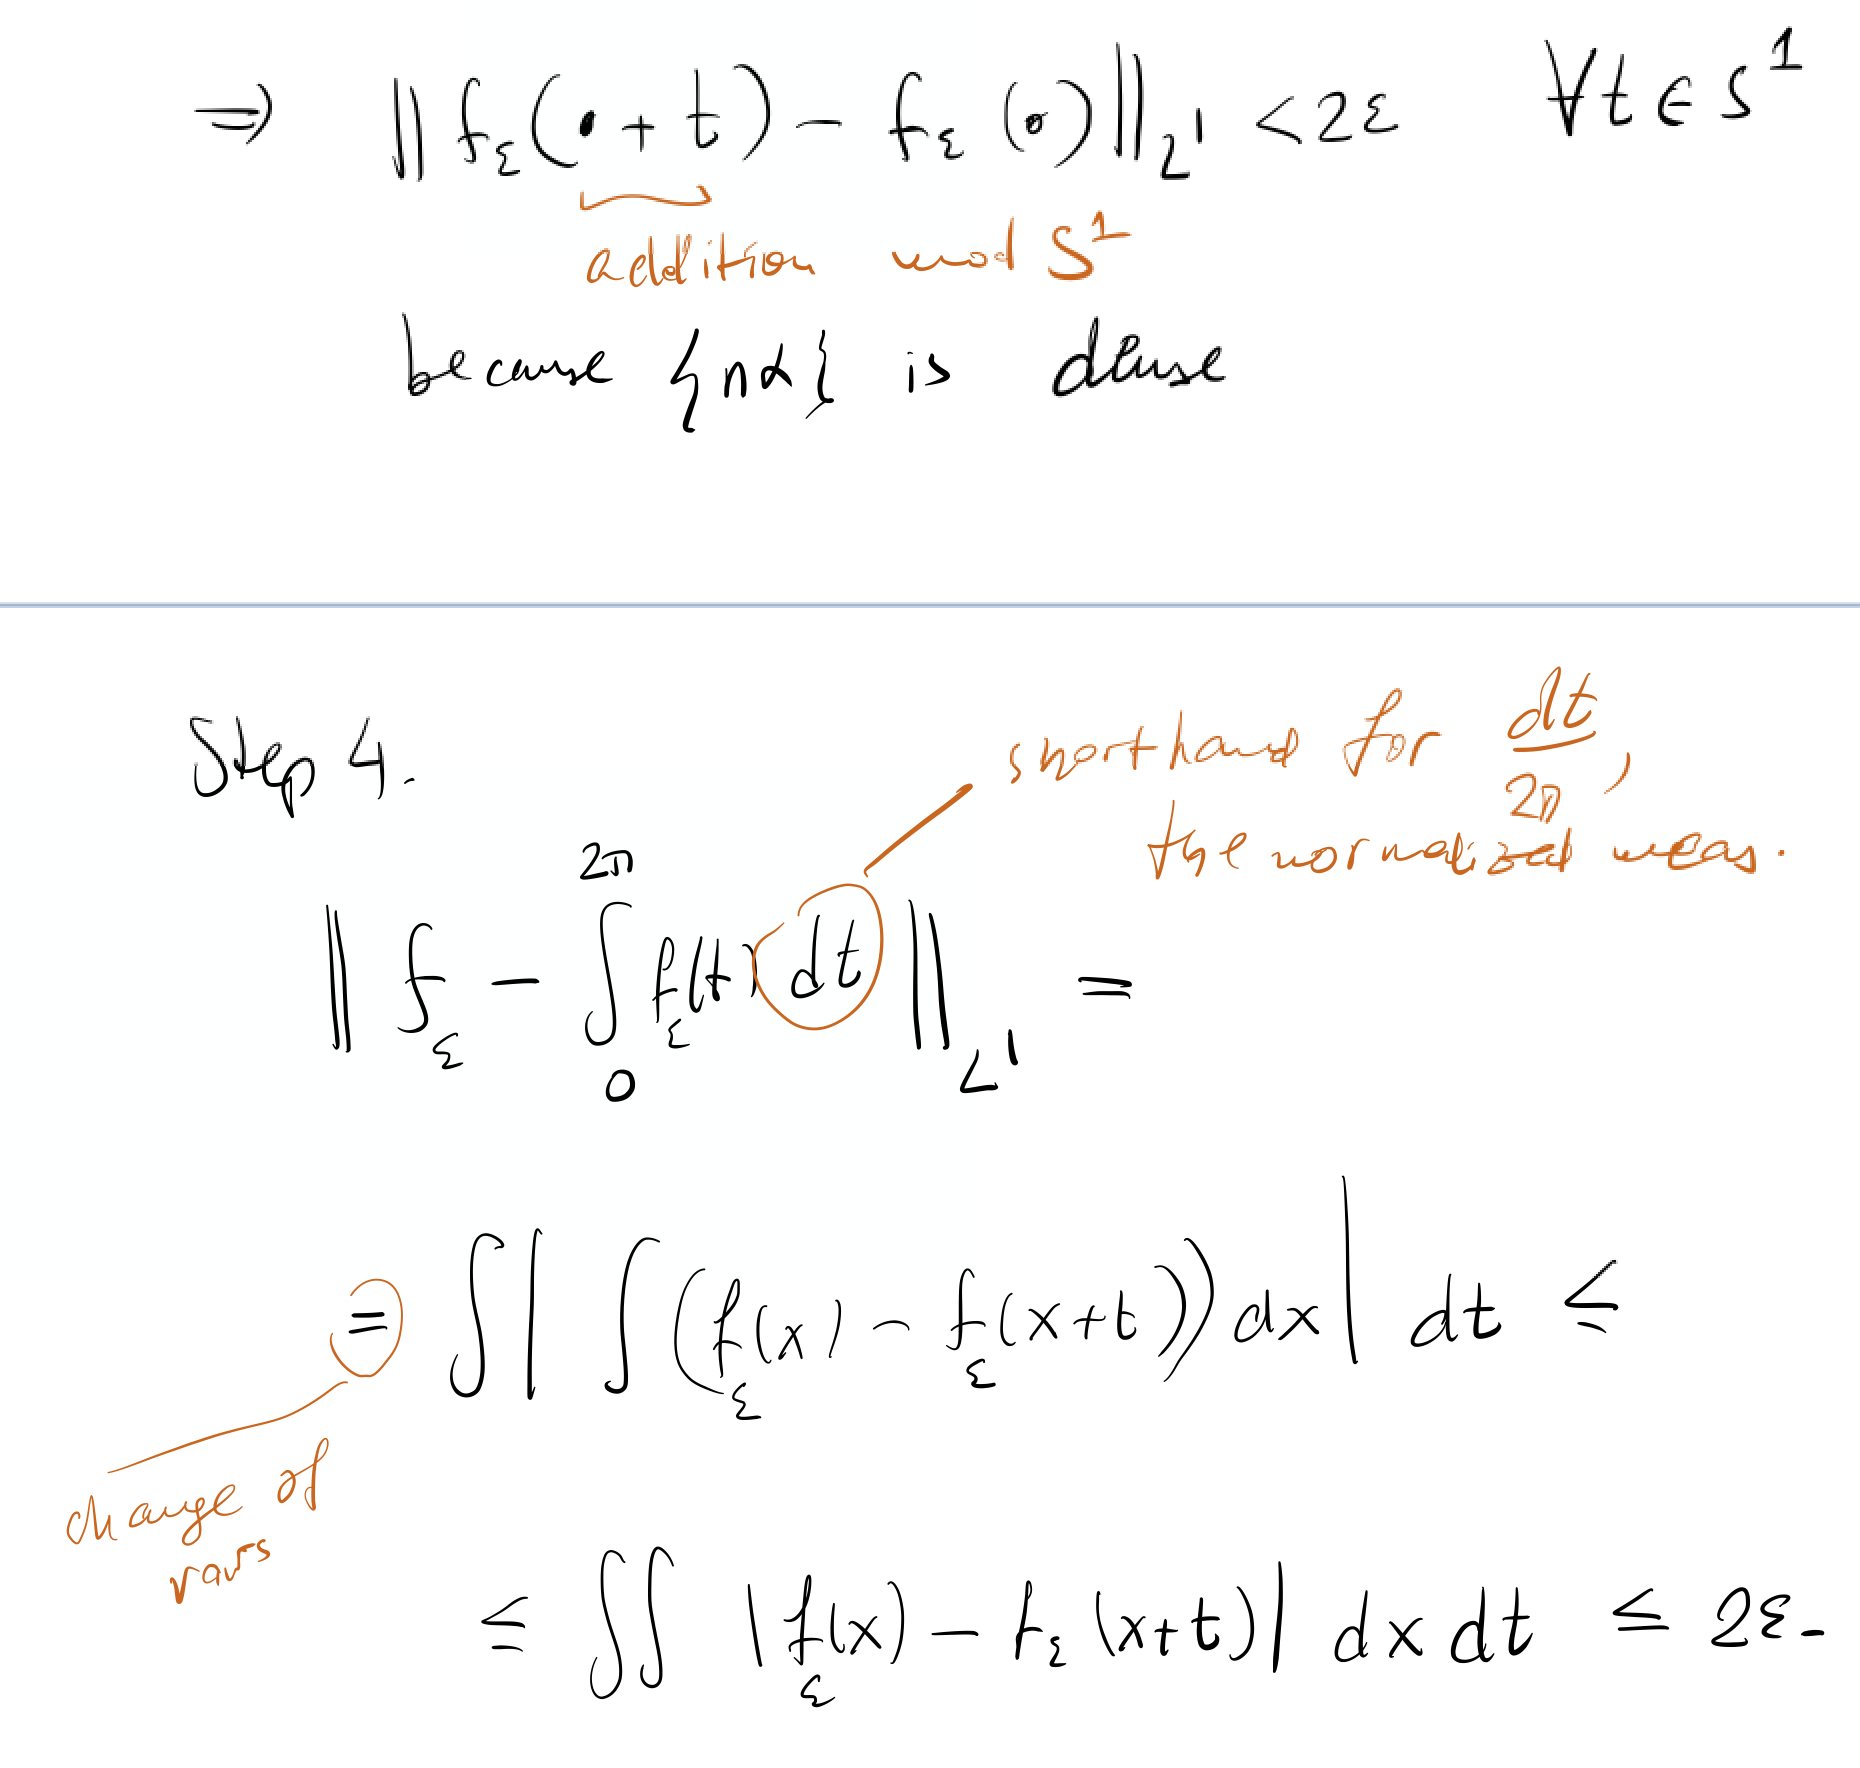 ⇒ ‖f_ε(• + t) − f_ε(•)‖_{L¹} < 2ε ∀t ∈ S¹
addition mod S¹
because {nα} is dense
Step 4.
shorthand for dt/2π,
the normalized meas.
‖ f_ε − ∫_0^{2π} f_ε(t) dt ‖_{L¹} =
= ∫ | ∫ (f_ε(x) − f_ε(x+t)) dx | dt ≤
change of
vars
≤ ∬ |f_ε(x) − f_ε(x+t)| dx dt ≤ 2ε.